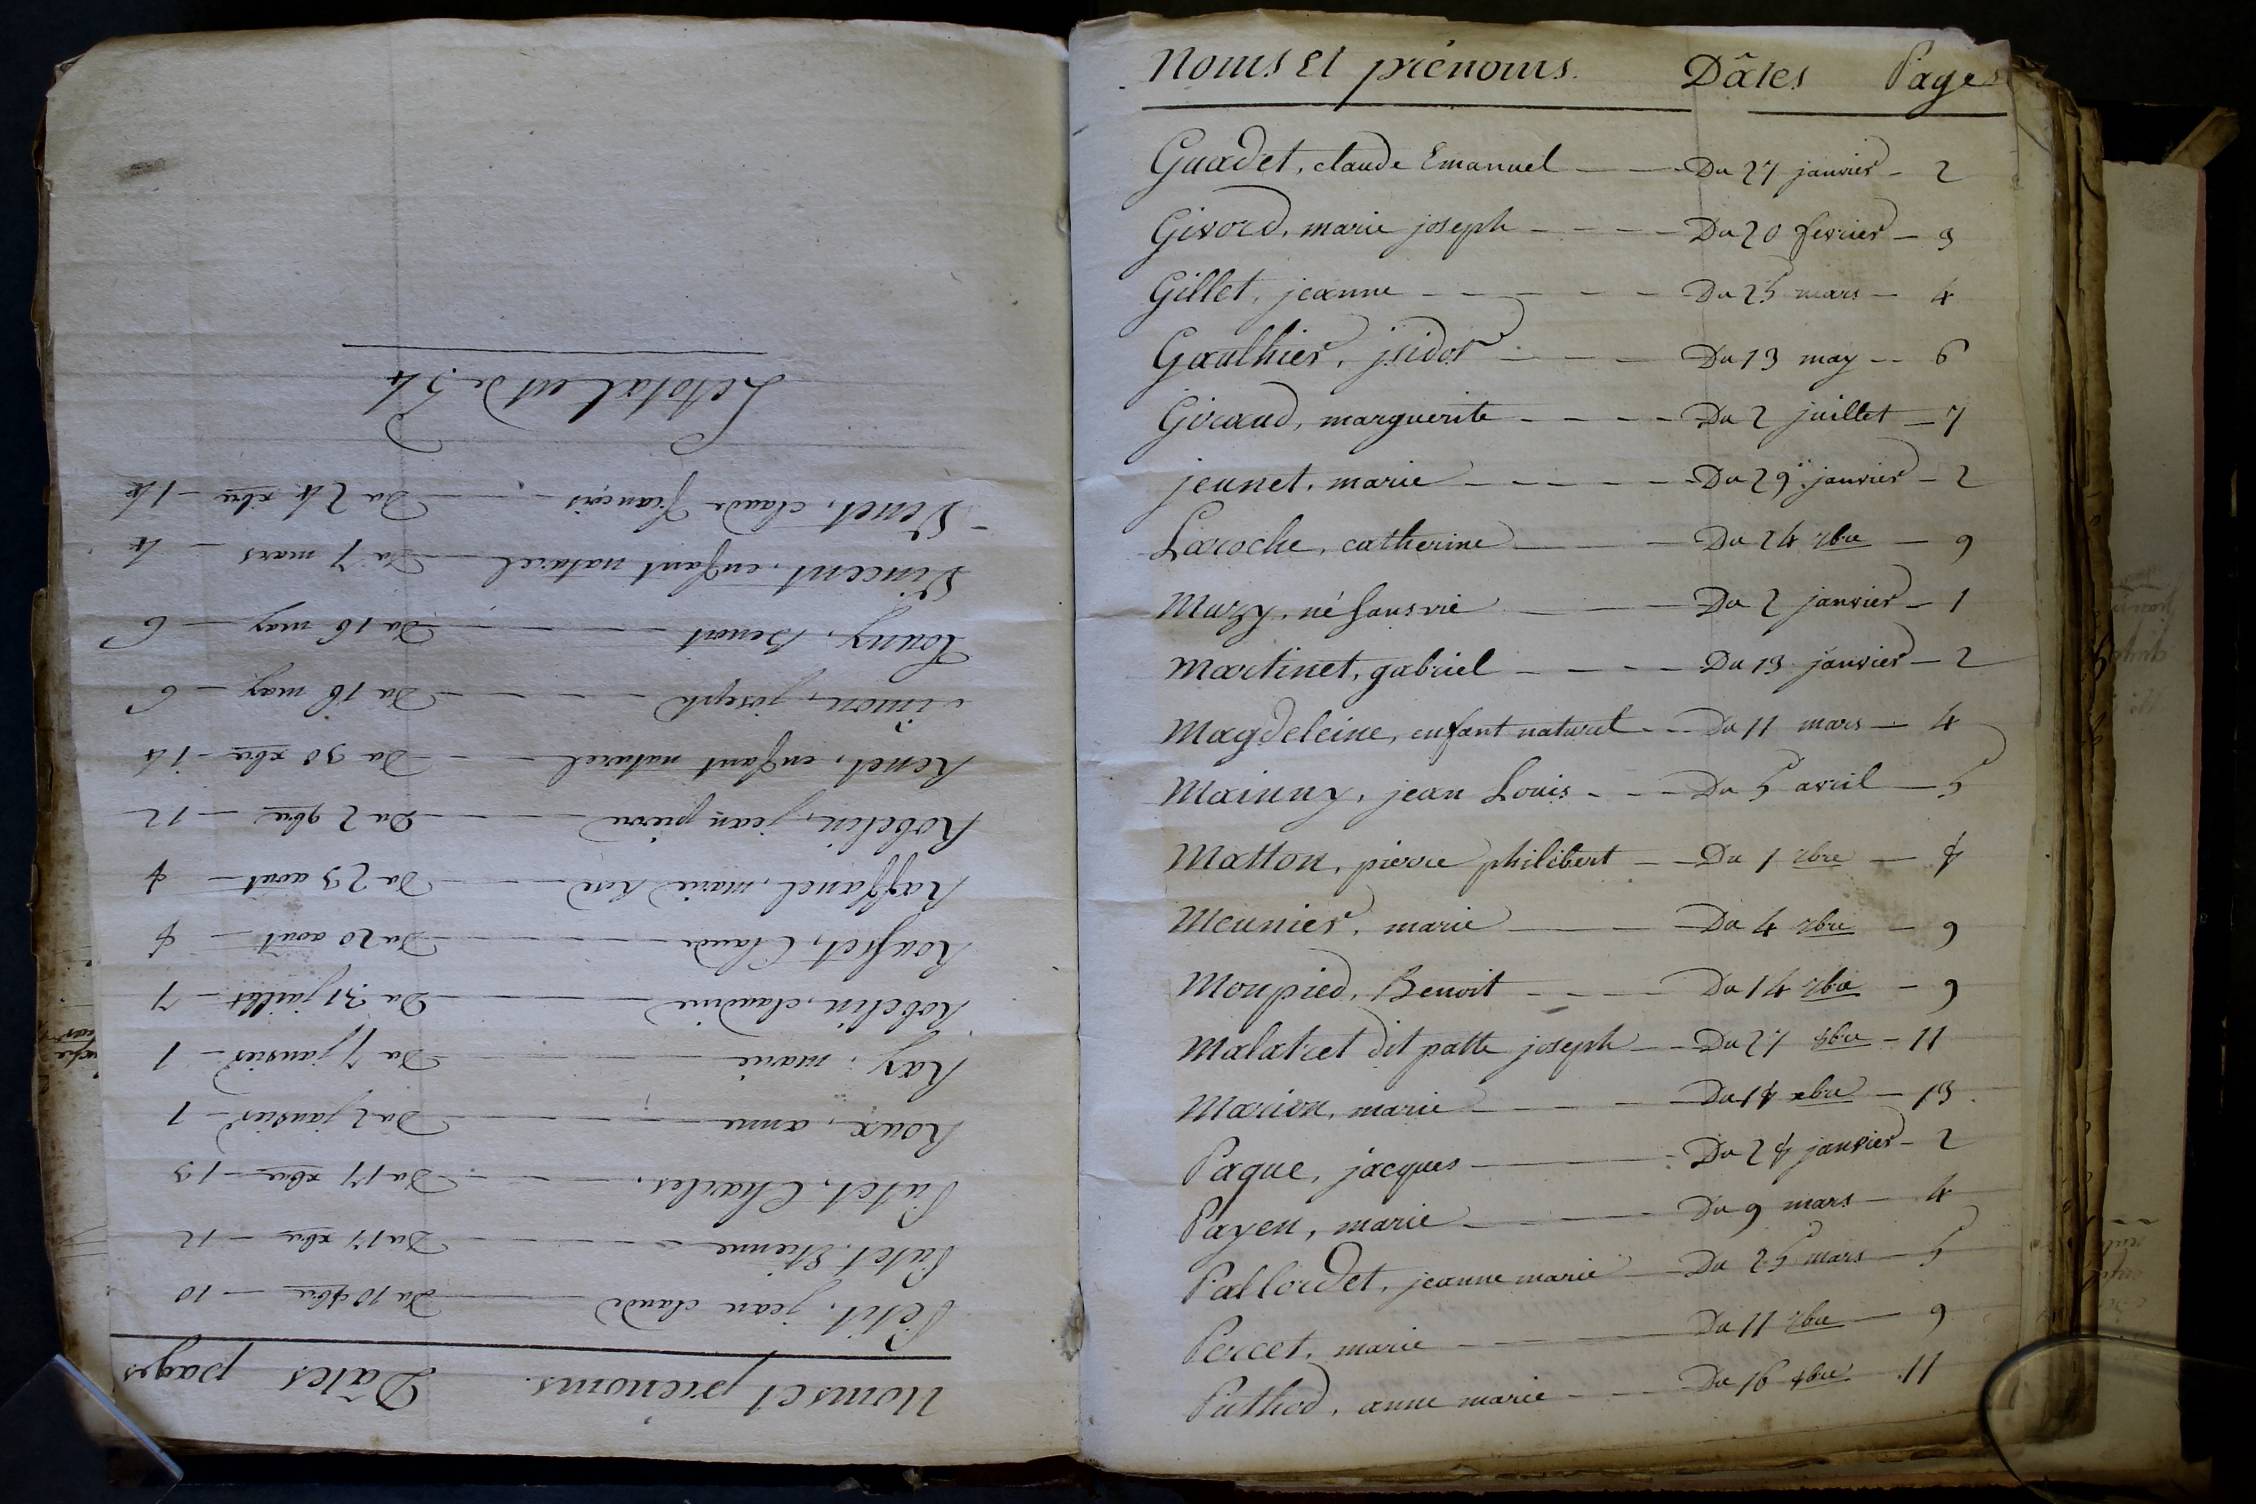 Noms et prénoms. Dâtes Pages
Guadet, claude Emanuel — Du 27 janvier — 2
Givord, marie joseph — Du 20 fevrier — 3
Gillet, jeanne — Du 25 mars — 4
Gaulhier, jsidor — Du 13 may — 6
Giraud, marguerite — Du 2 juillet — 7
jeunet, marie — Du 29 janvier — 2
Laroche, catherine — Du 24 7bre — 9
Muzy, né sans vie — Du 2 janvier — 1
Martinet, gabriel — Du 13 janvier — 2
Magdeleine, enfant naturel — Du 11 mars — 4
Mainny, jean Louis — Du 5 avril — 5
Matton, pierre philibert — Du 1 7bre — 8
Meunier, marie — Du 4 7bre — 9
Monpied, Benoit — Du 14 7bre — 9
Malatret dit patte joseph — Du 27 8bre — 11
Marion, marie — Du 18 xbre — 13
Paque, jacques — Du 28 janvier — 2
Payen, marie — Du 9 mars — 4
Pallordet, jeanne marie — Du 25 mars — 5
Percet, marie — Du 11 7bre — 9
Puthod, anne marie — Du 16 8bre — 11
Noms et prénoms. Dâtes pages
Petit, jean claude — Du 10 8bre — 10
Putet, Etienne — Du 17 xbre — 12
Putet, Charles, — Du 17 xbre — 13
Roux, anne — Du 2 janvier — 1
Ray, marie — Du 7 janvier — 1
Robelin, claudine — Du 31 juillet — 7
Rousset, Claude — Du 20 aout — 8
Raffanel, marie Rose — Du 23 aout — 8
Robelin, jean pierre — Du 2 9bre — 12
Renet, enfant naturel — Du 30 xbre — 14
Simon, joseph — Du 16 may — 6
Touny, Benoit — Du 16 may — 6
Vincent, enfant naturel — Du 7 mars — 4
Venet, claude françois — Du 24 xbre — 14
Le total est de 54